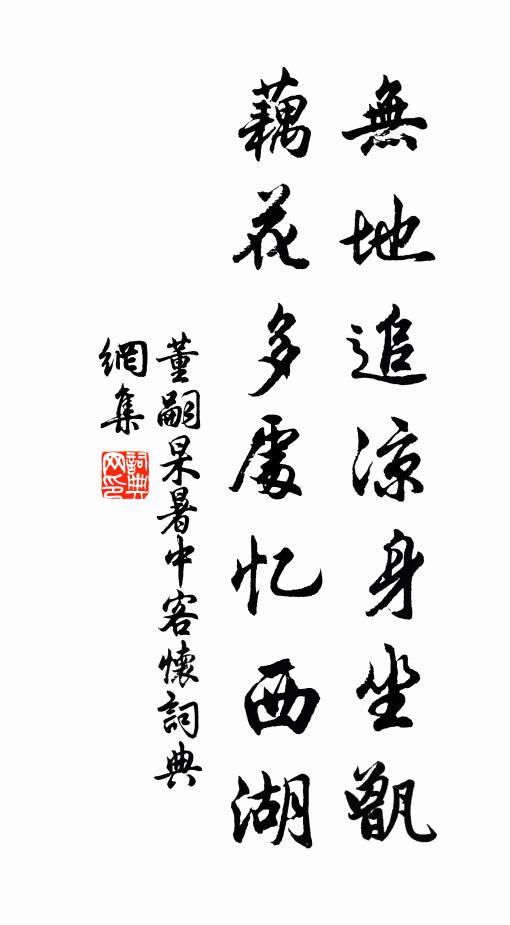 無地追涼身坐甑
藕花多處忆西湖
董嗣杲暑中客懷詞典
網集
詞典网印